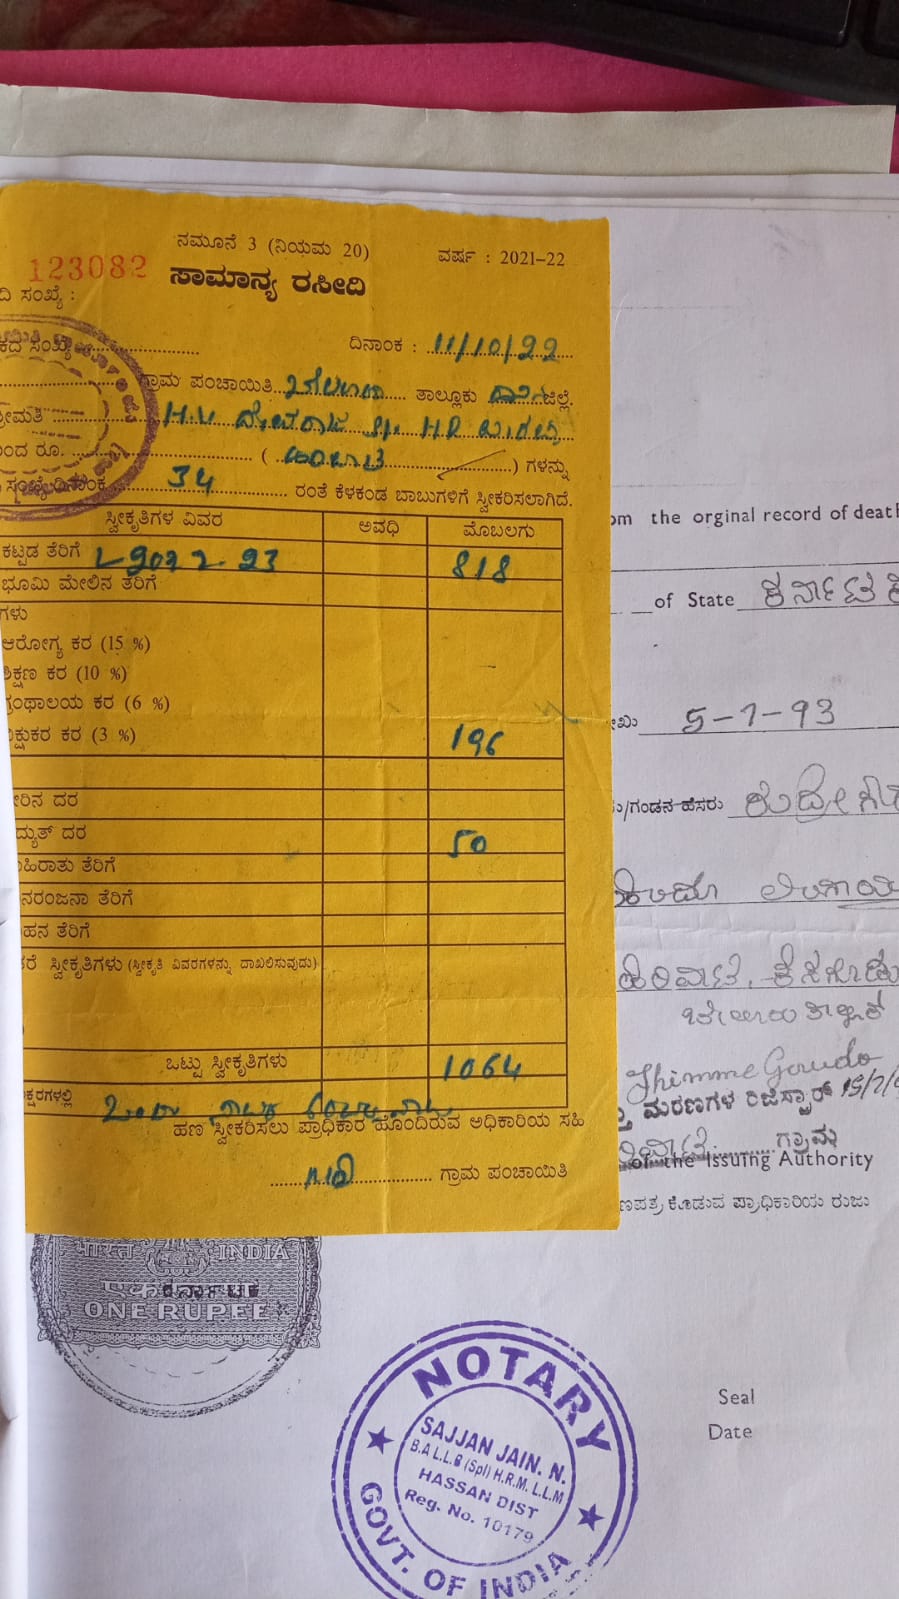 ನಮೂನೆ 3 (ನಿಯಮ 20)
ವರ್ಷ : 2021-22
123082
ಸಾಮಾನ್ಯ ರಸೀದಿ
ದಿ ಸಂಖ್ಯೆ :
ಕದ ಸಂಖ್ಯೆ
ದಿನಾಂಕ : 11/10/22
ಗ್ರಾಮ ಪಂಚಾಯಿತಿ ತಾಲ್ಲೂಕು ಹಾಸನ ಜಿಲ್ಲೆ.
ಶ್ರೀಮತಿ H.V ದೇವರಾಜ S/o H R
ಂದ ರೂ. ( ) ಗಳನ್ನು
ಸಂಖ್ಯೆ ದಿನಾಂಕ 34 ರಂತೆ ಕೆಳಕಂಡ ಬಾಬುಗಳಿಗೆ ಸ್ವೀಕರಿಸಲಾಗಿದೆ.
ಸ್ವೀಕೃತಿಗಳ ವಿವರ ಅವಧಿ ಮೊಬಲಗು
ಕಟ್ಟಡ ತೆರಿಗೆ 2022-23 818
ಭೂಮಿ ಮೇಲಿನ ತೆರಿಗೆ
ಗಳು
ಆರೋಗ್ಯ ಕರ (15 %)
ಶಿಕ್ಷಣ ಕರ (10 %)
ಗ್ರಂಥಾಲಯ ಕರ (6 %)
ಕ್ಷುಕರ ಕರ (3 %) 196
ೀರಿನ ದರ
ದ್ಯುತ್ ದರ 50
ಾಹಿರಾತು ತೆರಿಗೆ
ನರಂಜನಾ ತೆರಿಗೆ
ಹನ ತೆರಿಗೆ
ರೆ ಸ್ವೀಕೃತಿಗಳು (ಸ್ವೀಕೃತಿ ವಿವರಗಳನ್ನು ದಾಖಲಿಸುವುದು)
ಒಟ್ಟು ಸ್ವೀಕೃತಿಗಳು 1064
ಕ್ಷರಗಳಲ್ಲಿ
ಹಣ ಸ್ವೀಕರಿಸಲು ಪ್ರಾಧಿಕಾರ ಹೊಂದಿರುವ ಅಧಿಕಾರಿಯ ಸಹಿ
ಗ್ರಾಮ ಪಂಚಾಯಿತಿ
om the orginal record of death
of State ಕರ್ನಾಟಕ
5-7-93
/ಗಂಡನ ಹೆಸರು ರುದ್ರೇಗೌ
ಹಿಂದೂ ಲಿಂಗಾಯ
ಬೇಲೂರು ತಾಲ್ಲೂಕ್
Thimme Gowda
ಮರಣಗಳ ರಿಜಿಸ್ಟ್ರಾರ್ 15/7/9
ಗ್ರಾಮ
of the Issuing Authority
ಣಪತ್ರ ಕೊಡುವ ಪ್ರಾಧಿಕಾರಿಯ ರುಜು
भारत INDIA
एक ಕರ್ನಾಟಕ
ONE RUPEE
Seal
Date
NOTARY
SAJJAN JAIN. N.
B.A L.L.B (Spl) H.R.M. L.L.M
HASSAN DIST
Reg. No. 10179
GOVT. OF INDIA